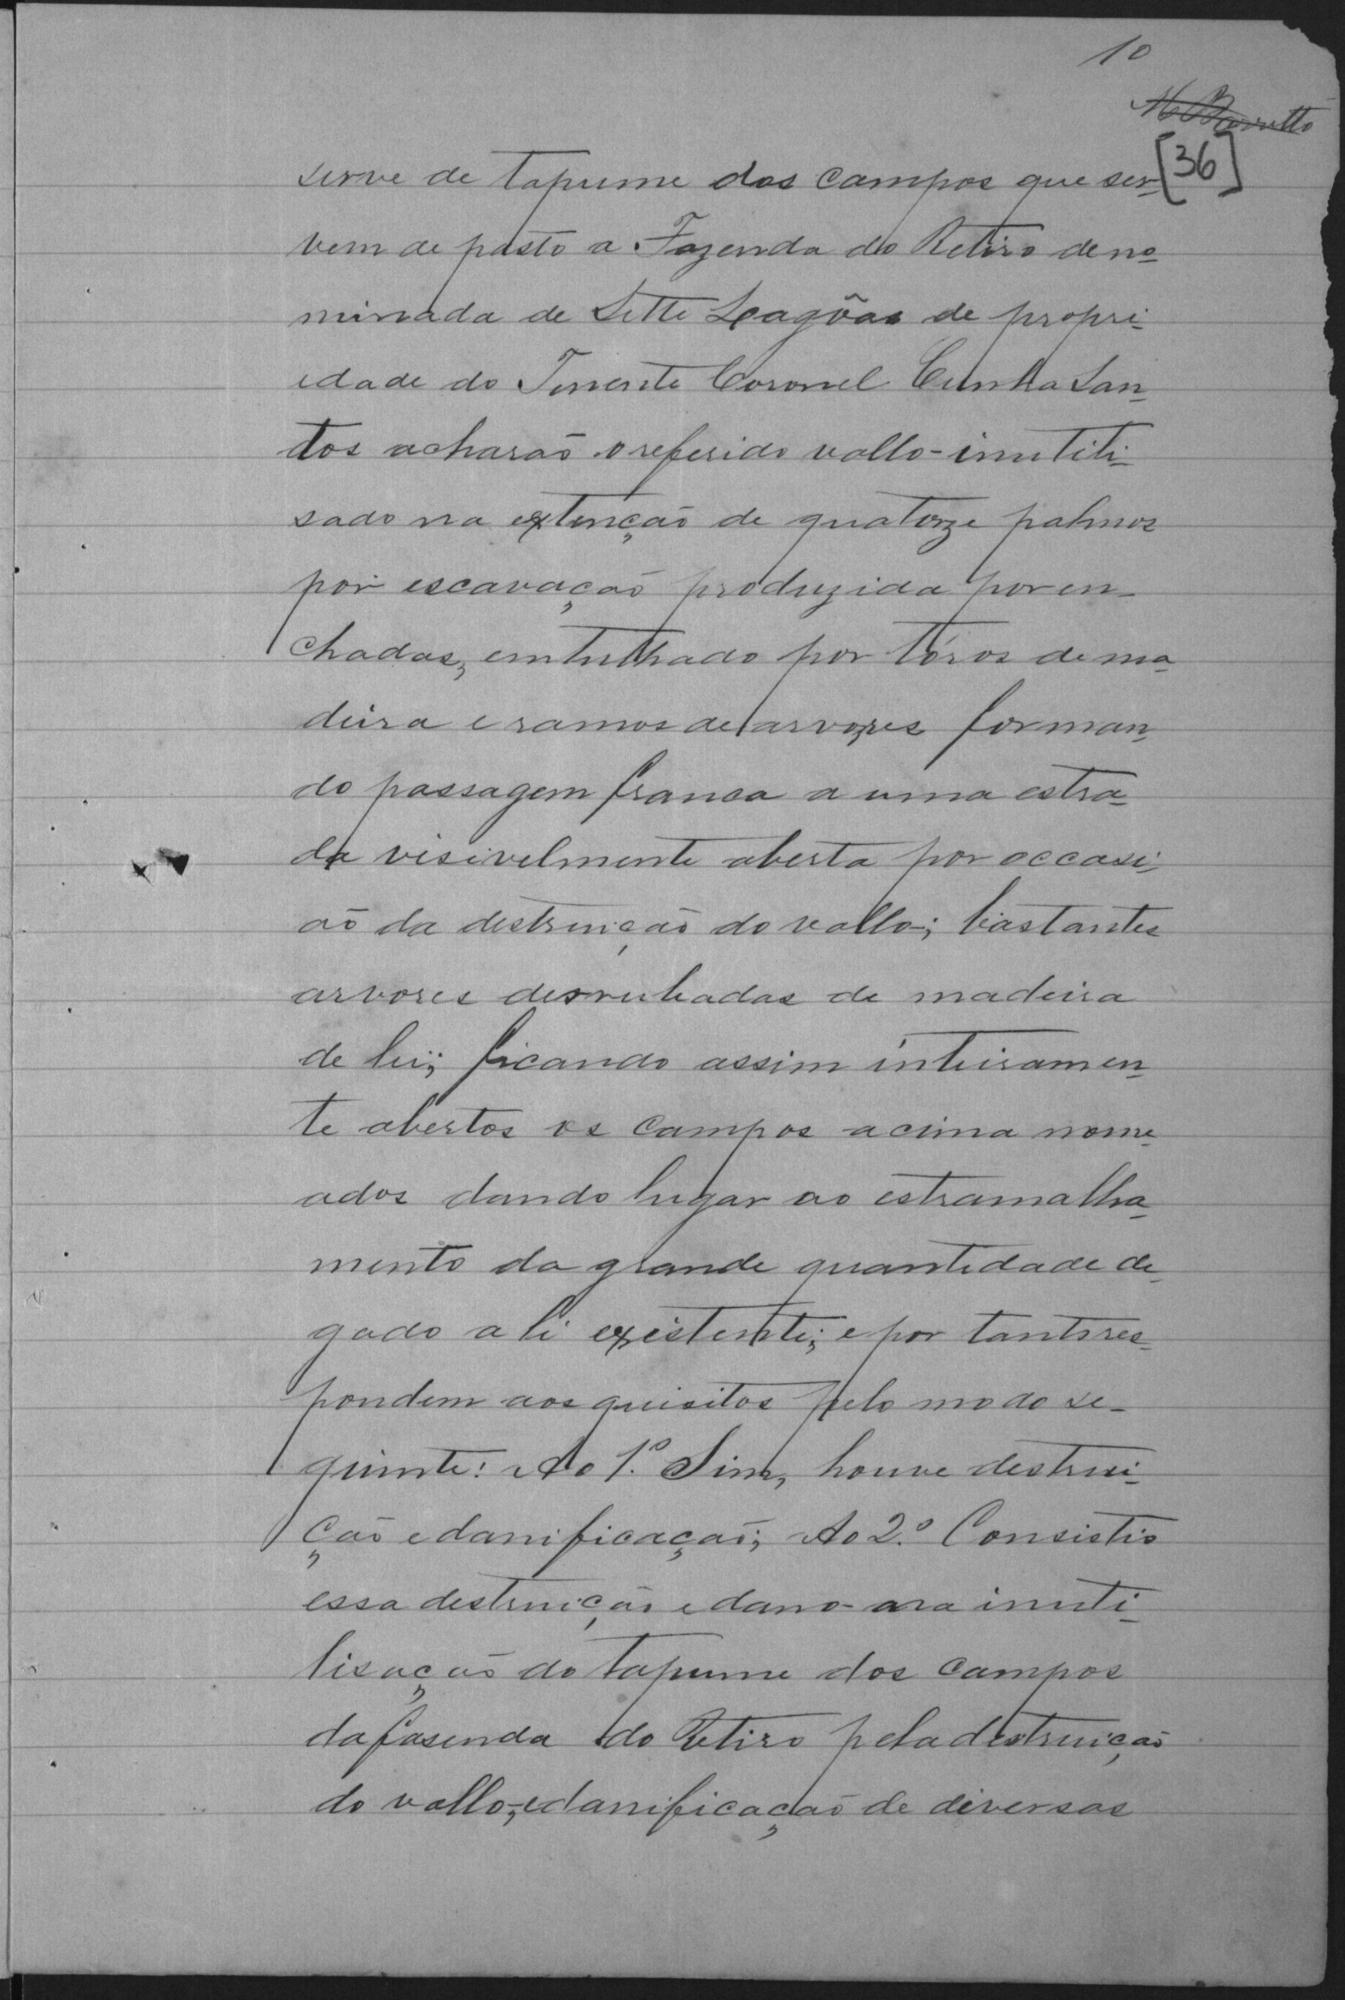 10
M Barretto
[36]
serve de tapume dos campos que ser-
vem de pasto a Fazenda do Retiro deno-
minada de Sette Lagôas de propri-
edade do Tenente Coronel Cunha San-
tos acharaõ o referido vallo-inutili-
sado na extençaõ de quatorze palmos
por escavaçaõ produzida por en-
chadas, entulhado por tóros de ma-
deira e ramos de arvores forman-
do passagem franca a uma estra-
da visivelmente aberta por occasi-
aõ da destruiçaõ do vallo-; bastantes
arvores derrubadas de madeira
de lei; ficando assim inteiramen-
te abertos os campos acima nome-
ados dando lugar ao estramalha-
mento da grande quantidade de-
gado ali existente; e por tanto res-
pondem aos quisitos pelo modo se-
guinte: Ao 1º. Sim, houve destrui-
çaõ e danificaçaõ; Ao 2.º Consistio
essa destruiçaõ e dano-na inuti-
lisaçaõ do tapume dos campos
da fasenda do Retiro pela destruiçaõ
do vallo-, e danificaçaõ de diversas